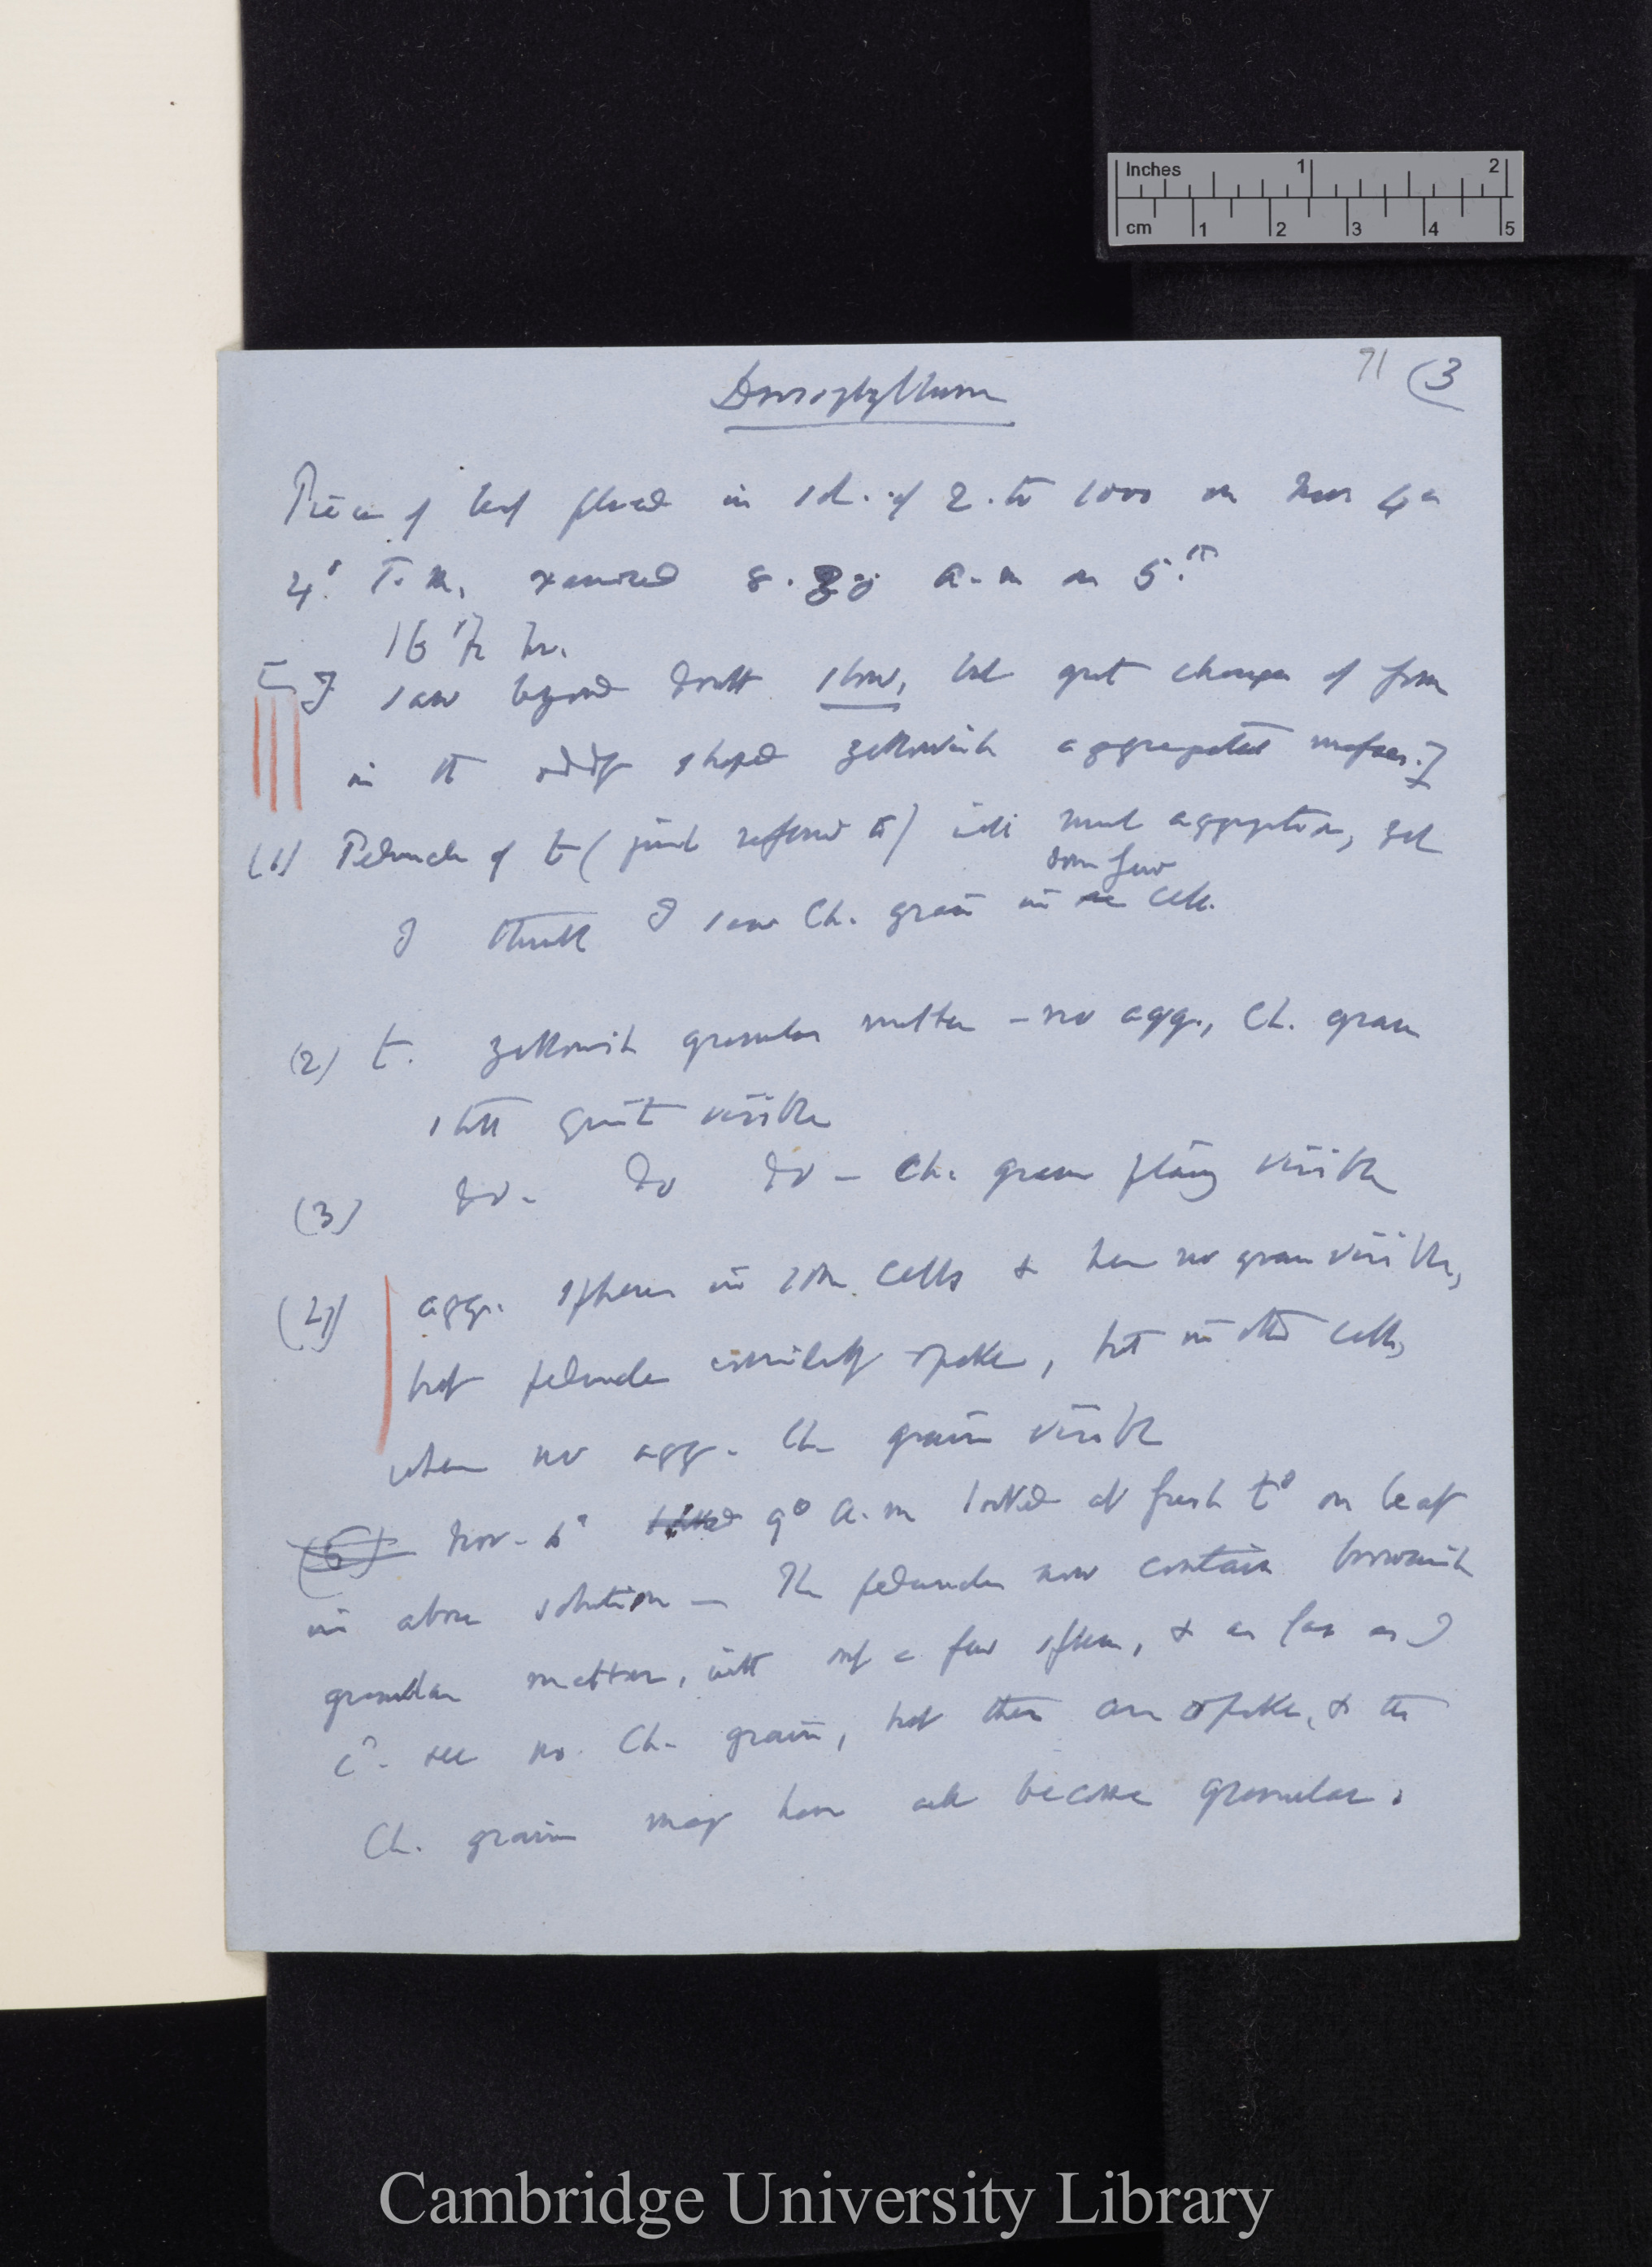 Inches 1 2
cm 1 2 3 4 5
71 (3
Drosophyllum
Piece of leaf placed in sol. of 2. to 1000 on Nov 4th
4° P.M, examined 8. 30 a.m on 5.th
16 1/2 hr.
[I saw beyond doubt slow, but great changes of form
in the oddly shaped yellowish aggregated masses.]
(1) Peduncle of t (just referred to) with much aggregation, yet
some few
I think I saw Ch. grain in cells.
(2) t. yellowish granular matter - no agg., Ch. grains
still quite visible
(3) do. do do - Ch. grains plainly visible
(4) agg. spheres in some cells & here no grains visible,
but peduncle opake, but in other cells,
when no agg. Ch grains visible
(5) Nov. 6th looked 9° a.m looked at fresh ts on leaf
in above solution — The peduncles now contain brownish
granular matter, with only a few spheres, & as far as I
cd. see no. Ch. grains, but they are opake, & the
Ch. grains may have all become granular.
Cambridge University Library